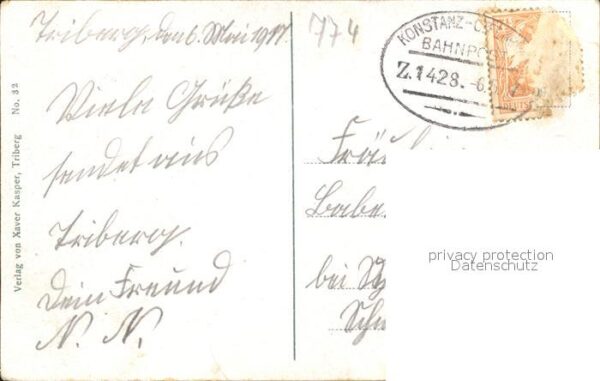 Triberg, den 6. Mai 1917.
Viele Grüße
sendet aus
Triberg.
Dein Freund
N. N.
Verlag von Xaver Kasper, Triberg No. 32
774
KONSTANZ-
BAHNPO
Z.1428. -6.
Babe
bei
privacy protection
Datenschutz